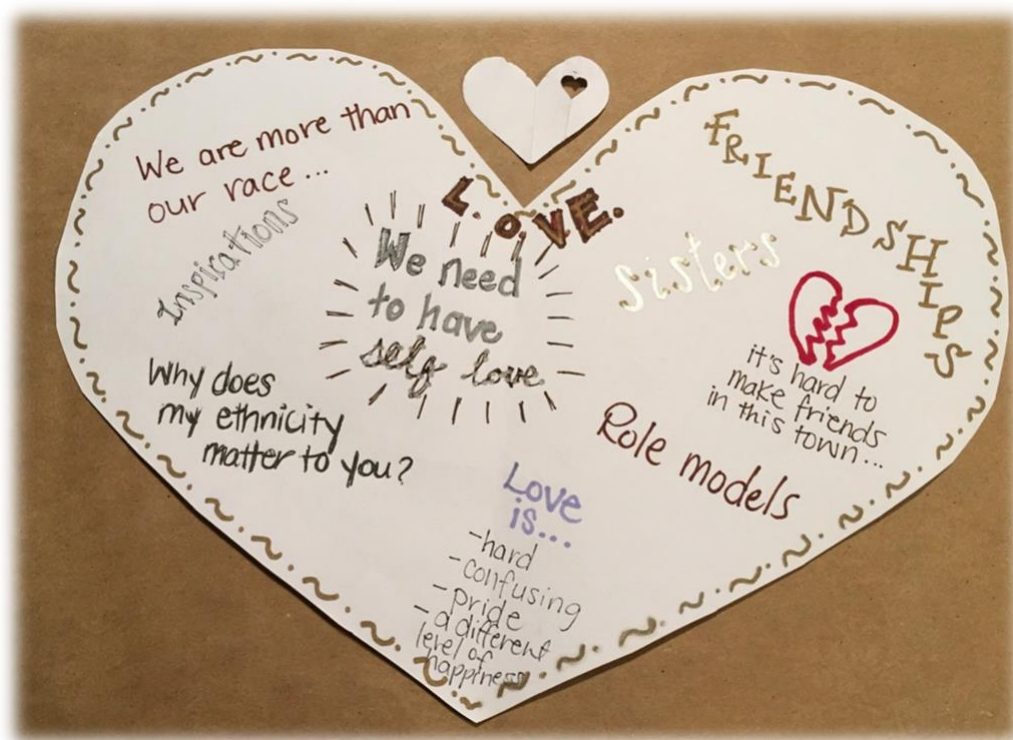 We are more than
our race...
Inspirations
L.OVE.
We need
to have
self love
FRIENDSHIPS
Sisters
it's hard to
make friends
in this town...
Why does
my ethnicity
matter to you?
Role models
Love
is...
-hard
-confusing
-pride
-a different
level of
happiness